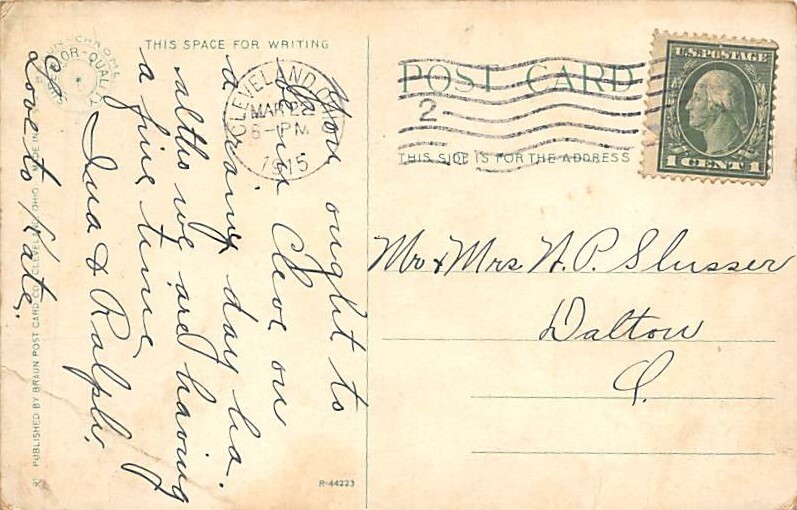 THIS SPACE FOR WRITING
POST CARD
THIS SIDE IS FOR THE ADDRESS
U.S. POSTAGE
1 CENT 1
CLEVELAND, O.
MAR 22
6-PM
1915
2
Mr & Mrs N. P. Slusser
Dalton
O.
You ought to
be in Cleve on
a rainy day ha.
altho we are having
a fine time
Ina & Ralph.
Love to Kate.
PUBLISHED BY BRAUN POST CARD CO., CLEVELAND, OHIO MADE IN
SUPERIOR-QUALITY
R-44223